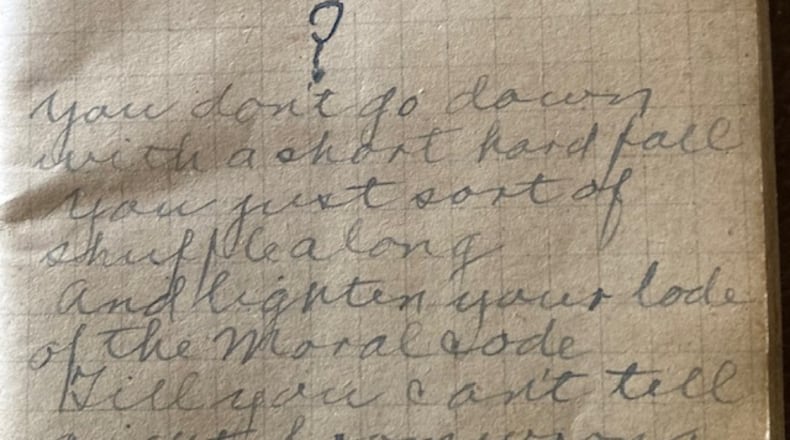 ?
you don't go down
with a short hard fall
You just sort of
shuffle along
And lighten your lode
of the Moral code
Till you can't tell
right from wrong